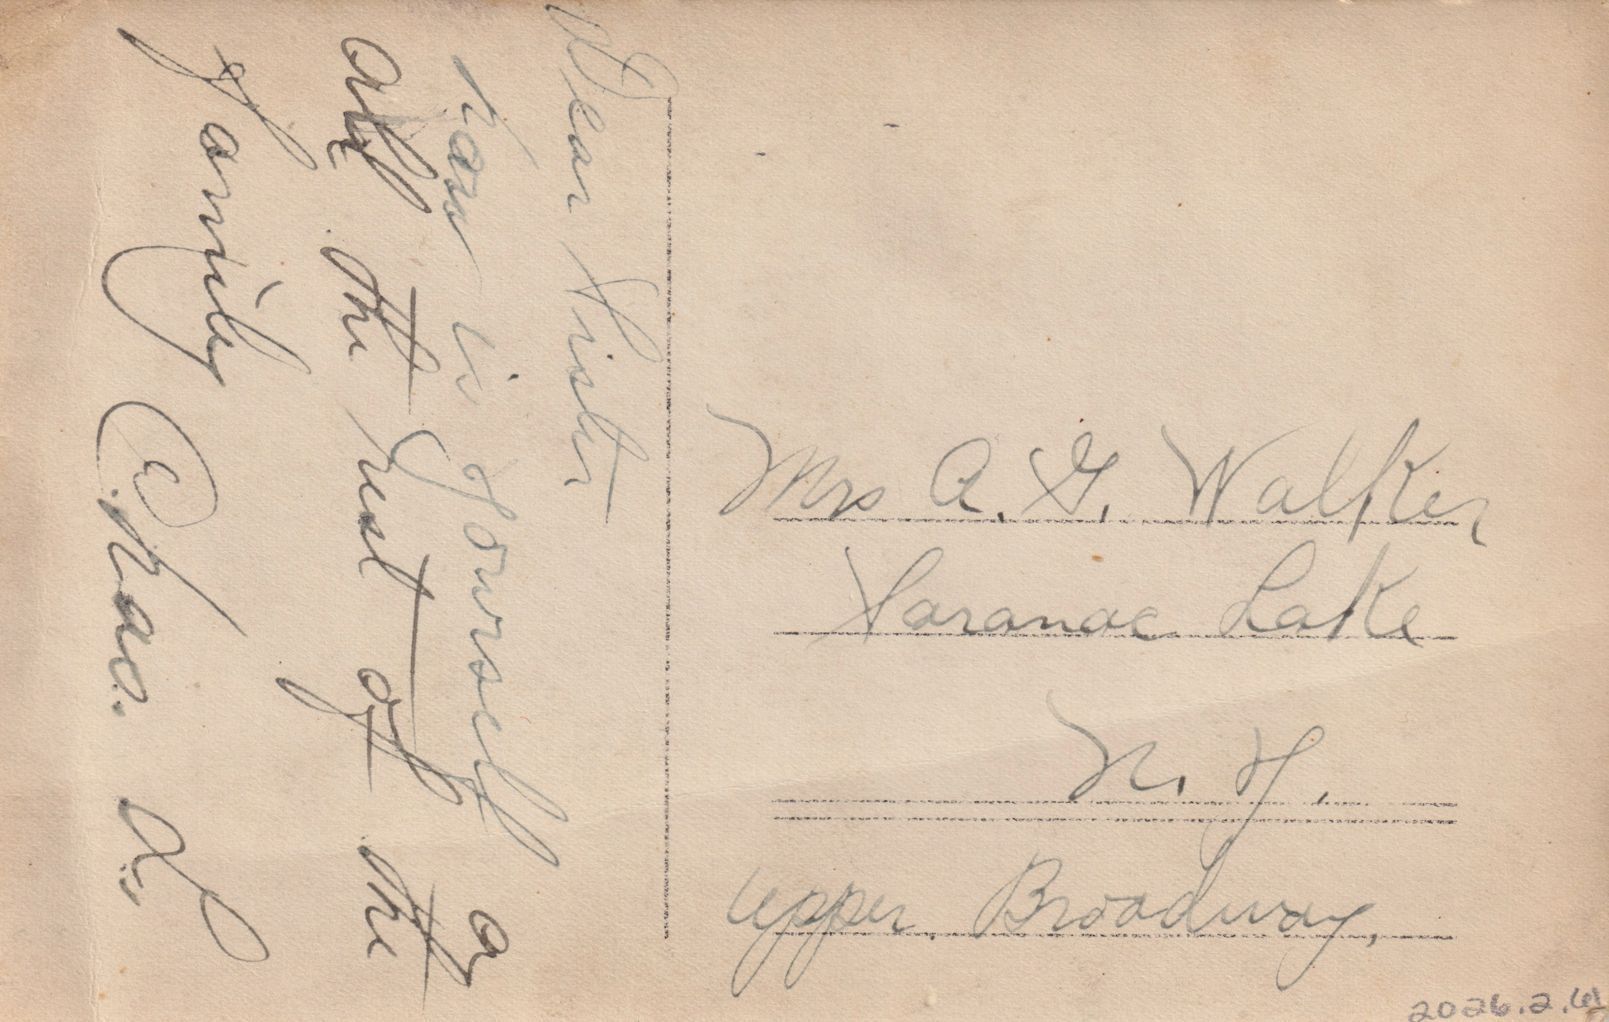 Dear Sister
how is yourself
and all the rest of the
family
Chas. L.
Mrs A. G. Walker
Saranac Lake
N. Y.
Upper Broadway,
2026.2.